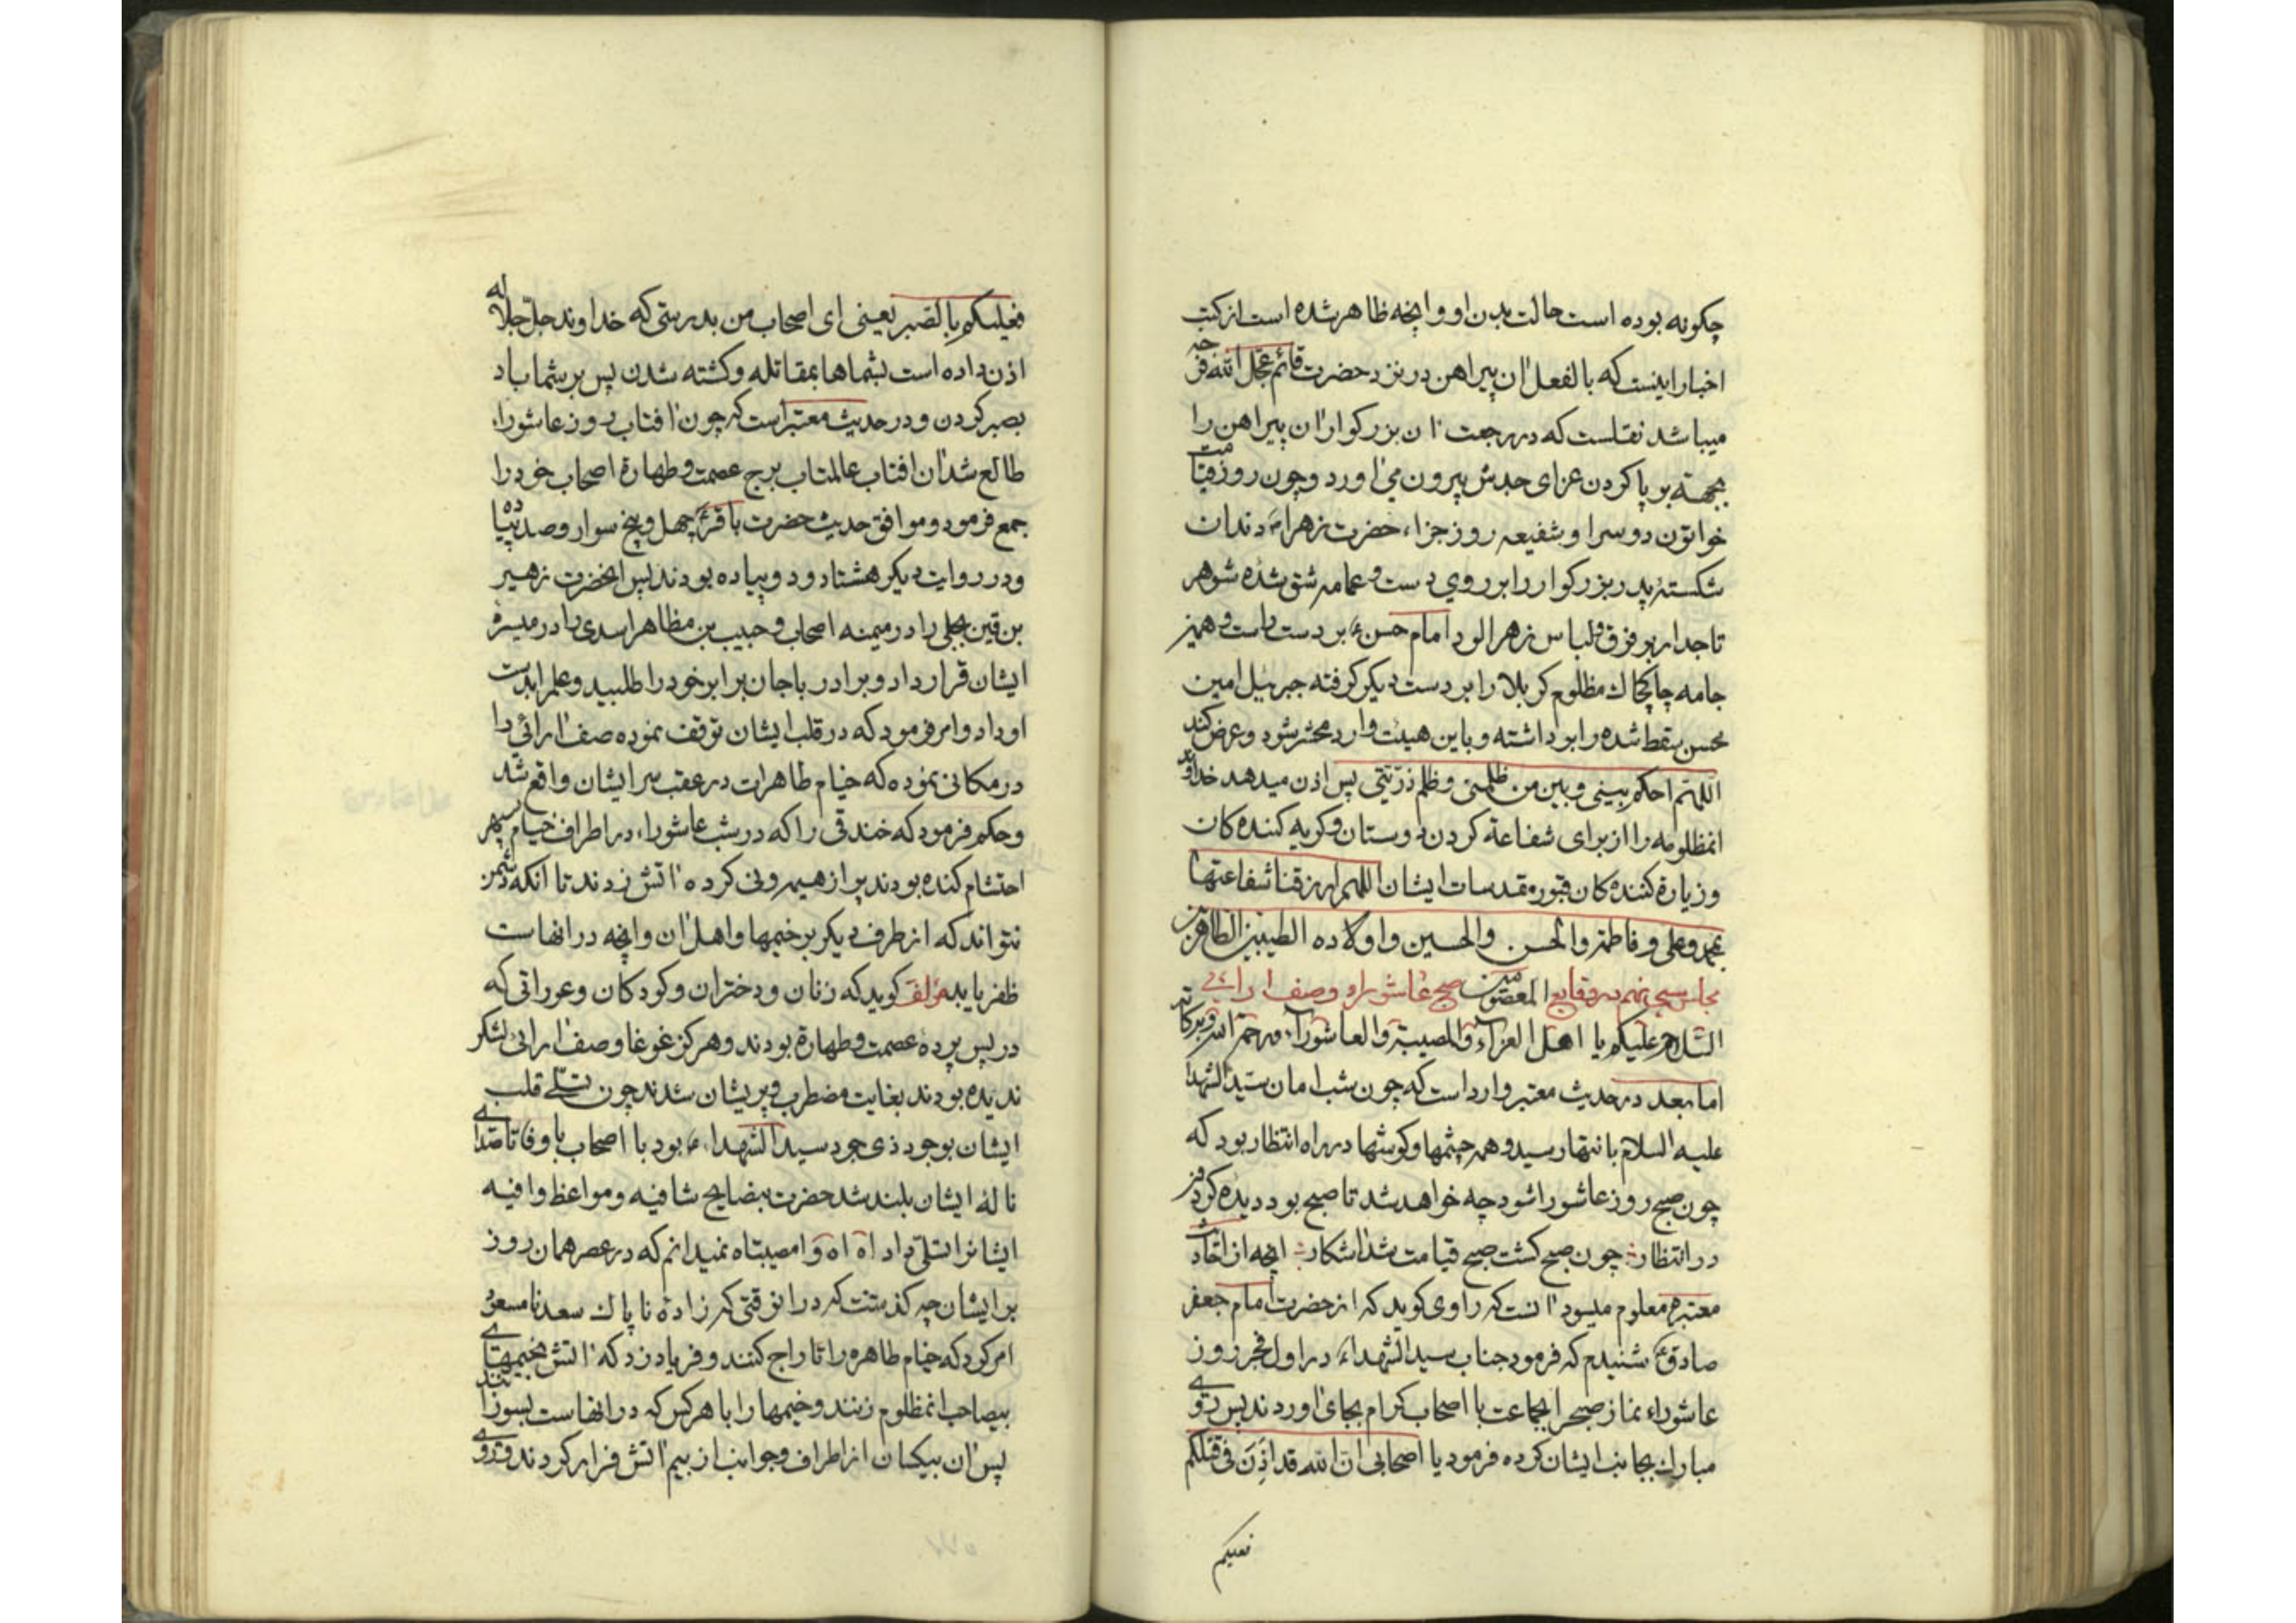 چکونه بوده است حالت بدن او و انچه ظاهر شده است از کتب
اخبار اینست که بالفعل ان پیراهن در نزد حضرت قائم عجل الله فرجه
میباشد نقلست که در رجعت ان بزرکوار ان پیراهن را
بجهته بر پا کردن عزای جدش بیرون می اورد و چون روز قیامت
خواتون دوسرا و شفیعه روز جزاء حضرت زهراء دندان
شکسته پدر بزرکوار را بر روی دست و عمامه شق شده شوهر
تاجدار بر فرق و لباس زهر الود امام حسن بر دست راست و همیز
جامه چاکچاک مظلوم کربلا را بر دست دیکر کرفته جبرئیل امین
محسن سقط شده را بر داشته و باین هیئت وارد محشر شود و عرض کند
اللهم احکم بینی و بین من ظلمنی و ظلم ذریتی پس اذن میدهد خداوند
انمظلومه را از برای شفاعة کردن دوستان و کریه کننده کان
و زیارة کننده کان قبور مقدسات ایشان اللهم ارزقنا شفاعتها
بمحمد و علی و فاطمة و الحسن والحسین و اولاده الطیبین الطاهرین
المعصومین مجلس سی نهم در وقایع صبح عاشوراء و صف ارائی
السلام علیکم یا اهل العزاء والمصیبة والعاشوراء و رحمة الله و برکاته
اما بعد در حدیث معتبر وارد است که چون شب امان سید الشهدا
علیه السلام بانتها رسید و همه چشمها و کوشها در راه انتظار بود که
چون صبح روز عاشورا شود چه خواهد شد تا صبح بود دیده کردون
در انتظار چون صبح کشت صبح قیامت شد اشکار انچه از
معتبره معلوم میسود انست که راوی کوید که از حضرت امام جعفر
صادق شنیدم که فرمود جناب سید الشهداء در اول فجر روز
عاشوراء نماز صبح را بجماعت با اصحاب کرام بجای اوردند پس روی
مبارک بجانب ایشان کرده فرمود یا اصحابی ان الله قد اذن فی قتلکم
فعلیکم
فعلیکم بالصبر یعنی ای اصحاب من بدرستی که خداوند جل جلاله
اذن داده است بشماها بمقاتله و کشته شدن پس بر شما باد
بصبر کردن و در حدیث معتبر است که چون افتاب روز عاشوراء
طالع شد ان افتاب عالمتاب برج عصمت و طهارة اصحاب خود را
جمع فرمود و موافق حدیث حضرت باقر چهل و پنج سوار و صد پیاده
و در روایت دیکر هشتاد و دو پیاده بودند پس انحضرت زهیر
بن قین بجلی را در میمنه اصحاب و حبیب بن مظاهر اسدی را در میسره
ایشان قرار داد و برادر با جان برابر خود را طلبید و علم را بدست
او داد و امر فرمود که در قلب ایشان توقف نموده صف ارائی را
در مکانی نموده که خیام طاهرات در عقب سر ایشان واقع شد
و حکم فرمود که خندقی را که در شب عاشوراء در اطراف خیام سپهر
احتشام کنده بودند پر از هیمه و نی کرده اتش زدند تا انکه دشمن
نتواند که از طرف دیکر بر خیمها و اهل ان و انچه در انهاست
ظفر یابد مؤلف کوید که زنان و دختران و کودکان و عوراتی که
در پس پرده عصمت و طهارة بودند و هرکز غوغا و صف ارائی لشکر
ندیده بودند بغایت مضطرب و پریشان شدند چون تسلی قلب
ایشان بوجود ذی جود سید الشهداء بود با اصحاب با وفا تا صدای
نالهٔ ایشان بلند شد حضرت بنصایح شافیه و مواعظ وافیه
ایشانرا تسلی داد اه اه وا مصیبتاه نمیدانم که در عصر همان روز
بر ایشان چه کذشت که در انوقتی که زاده ناپاک سعد نامسعود
امر کرد که خیام طاهره را تاراج کنند و فریاد زد که اتش بخیمهای
بیصاحب انمظلوم زنند و خیمها را با هر کس که در انهاست بسوزانند
پس ان بیکسان از اطراف و جوانب از بیم اتش فرار کردند و روی